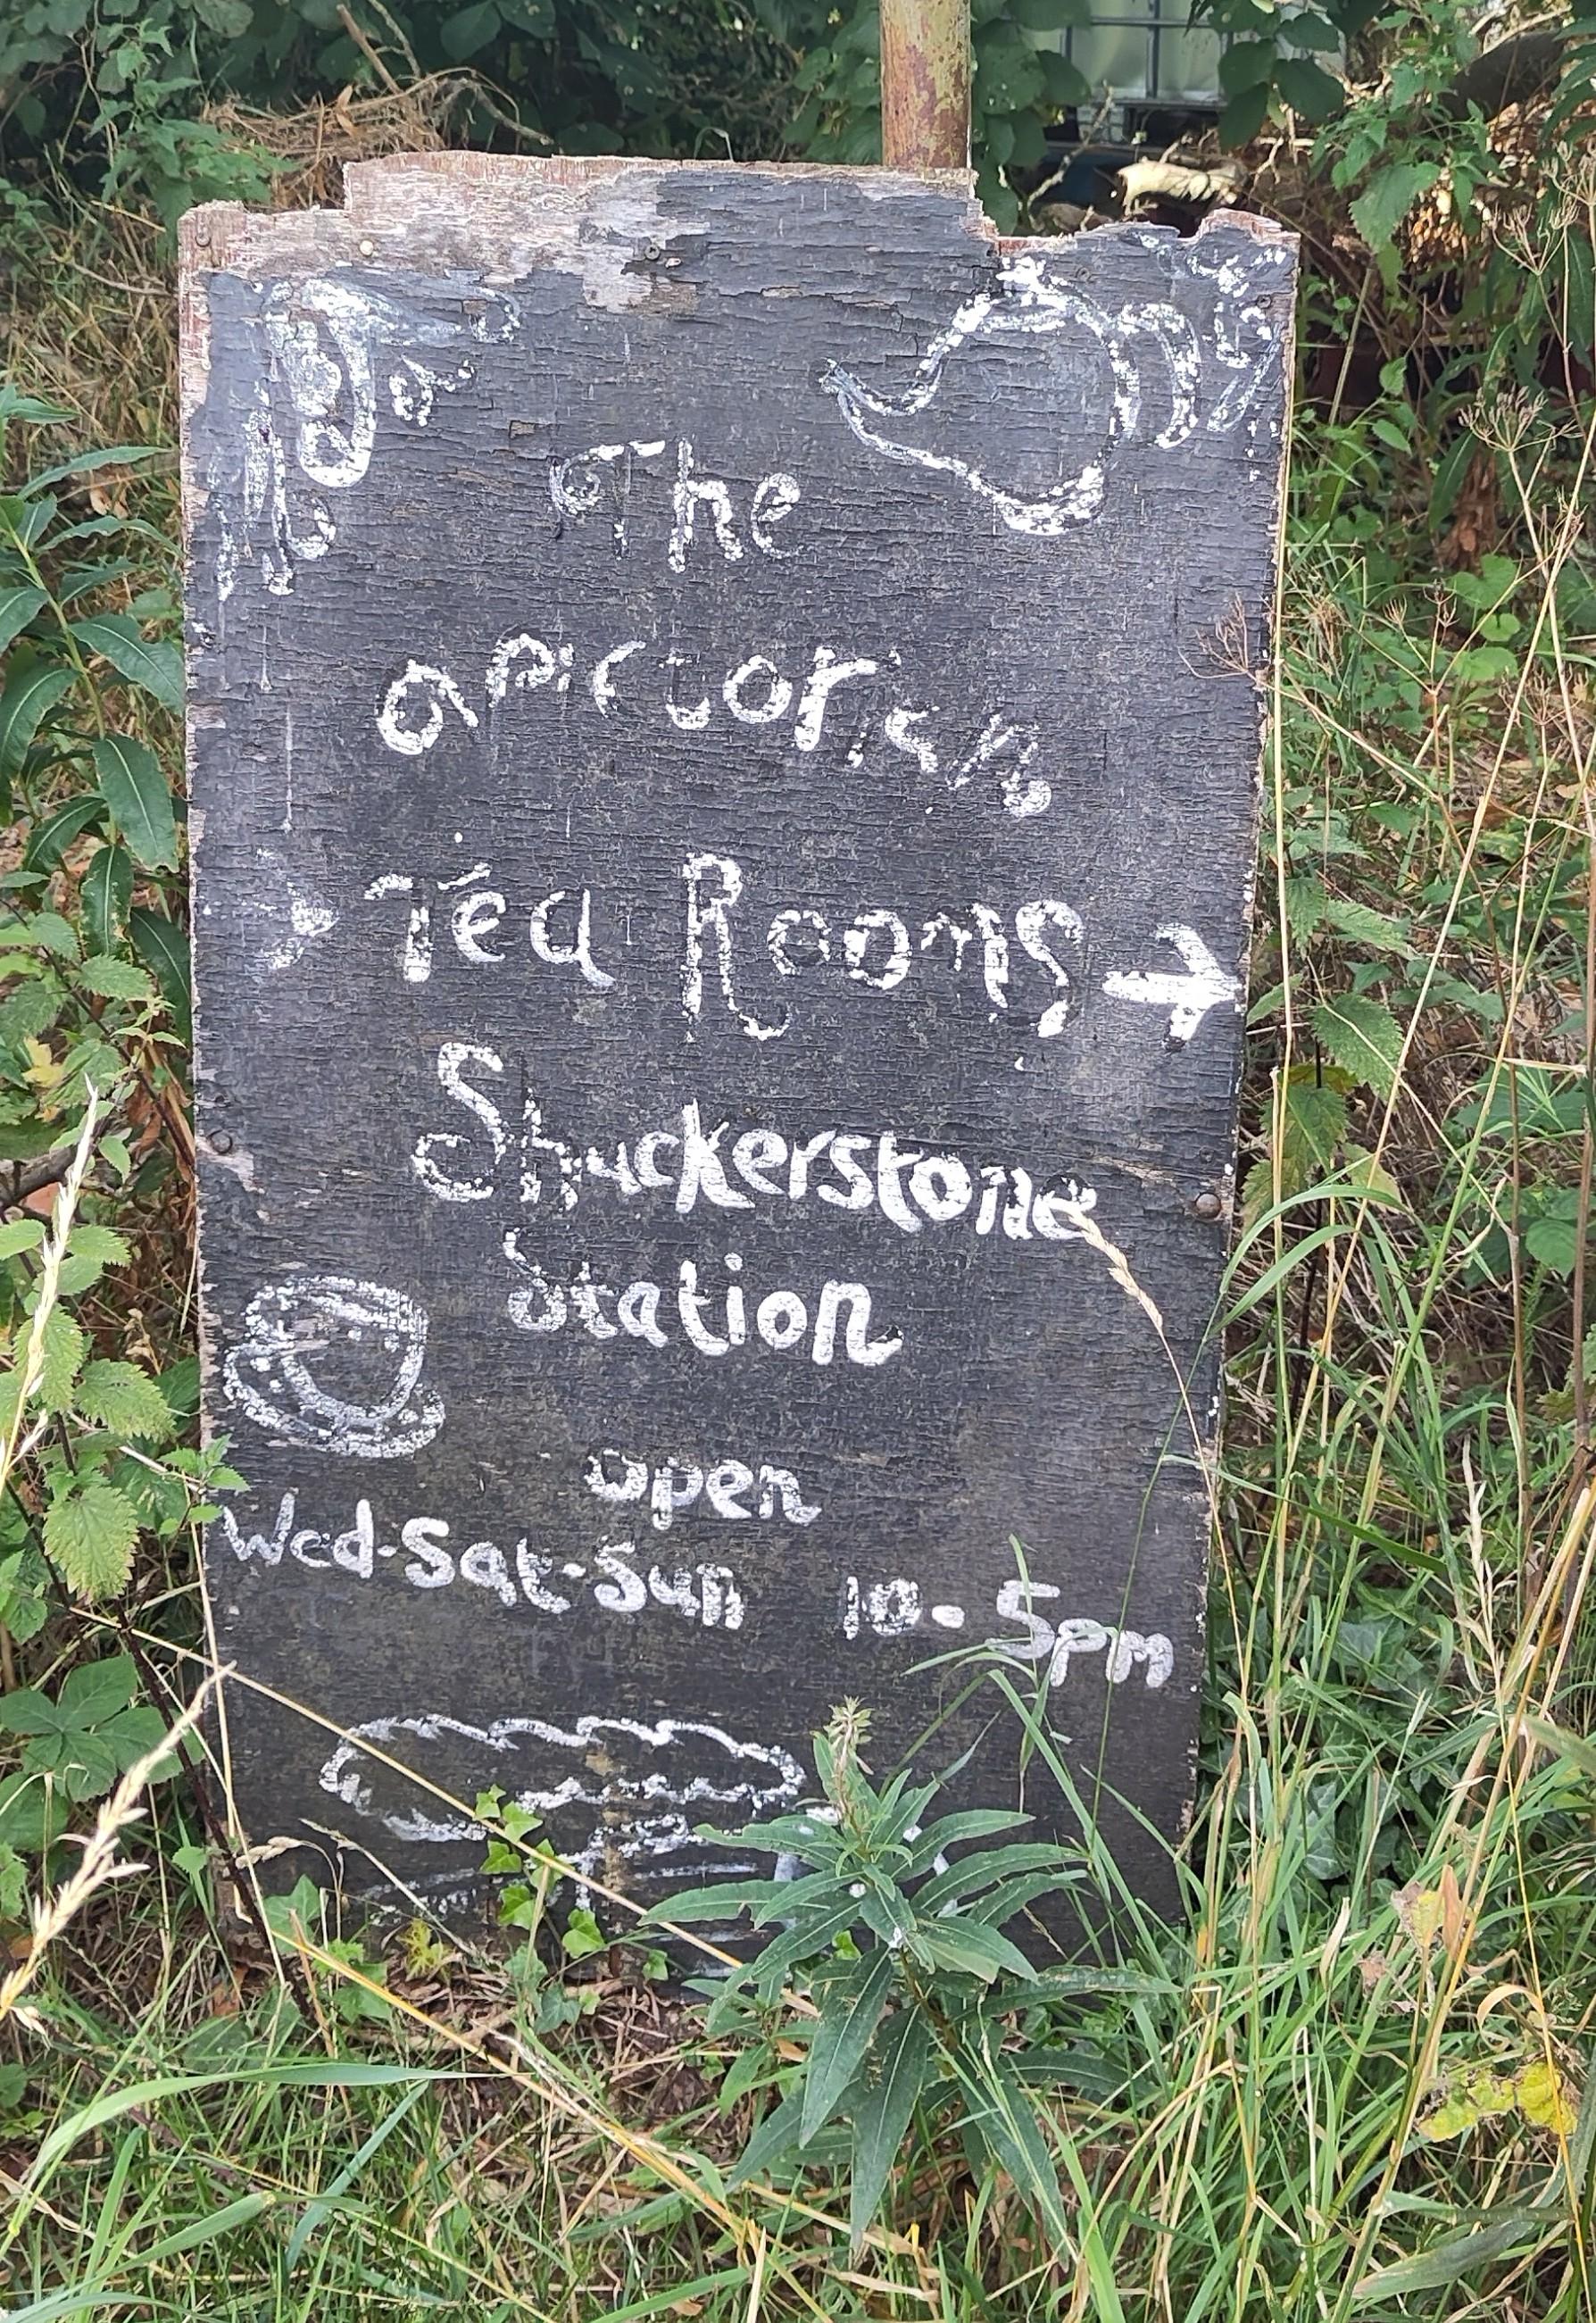 The
Victorian
Tea Rooms →
Shackerstone
Station
open
Wed-Sat-Sun 10-5pm